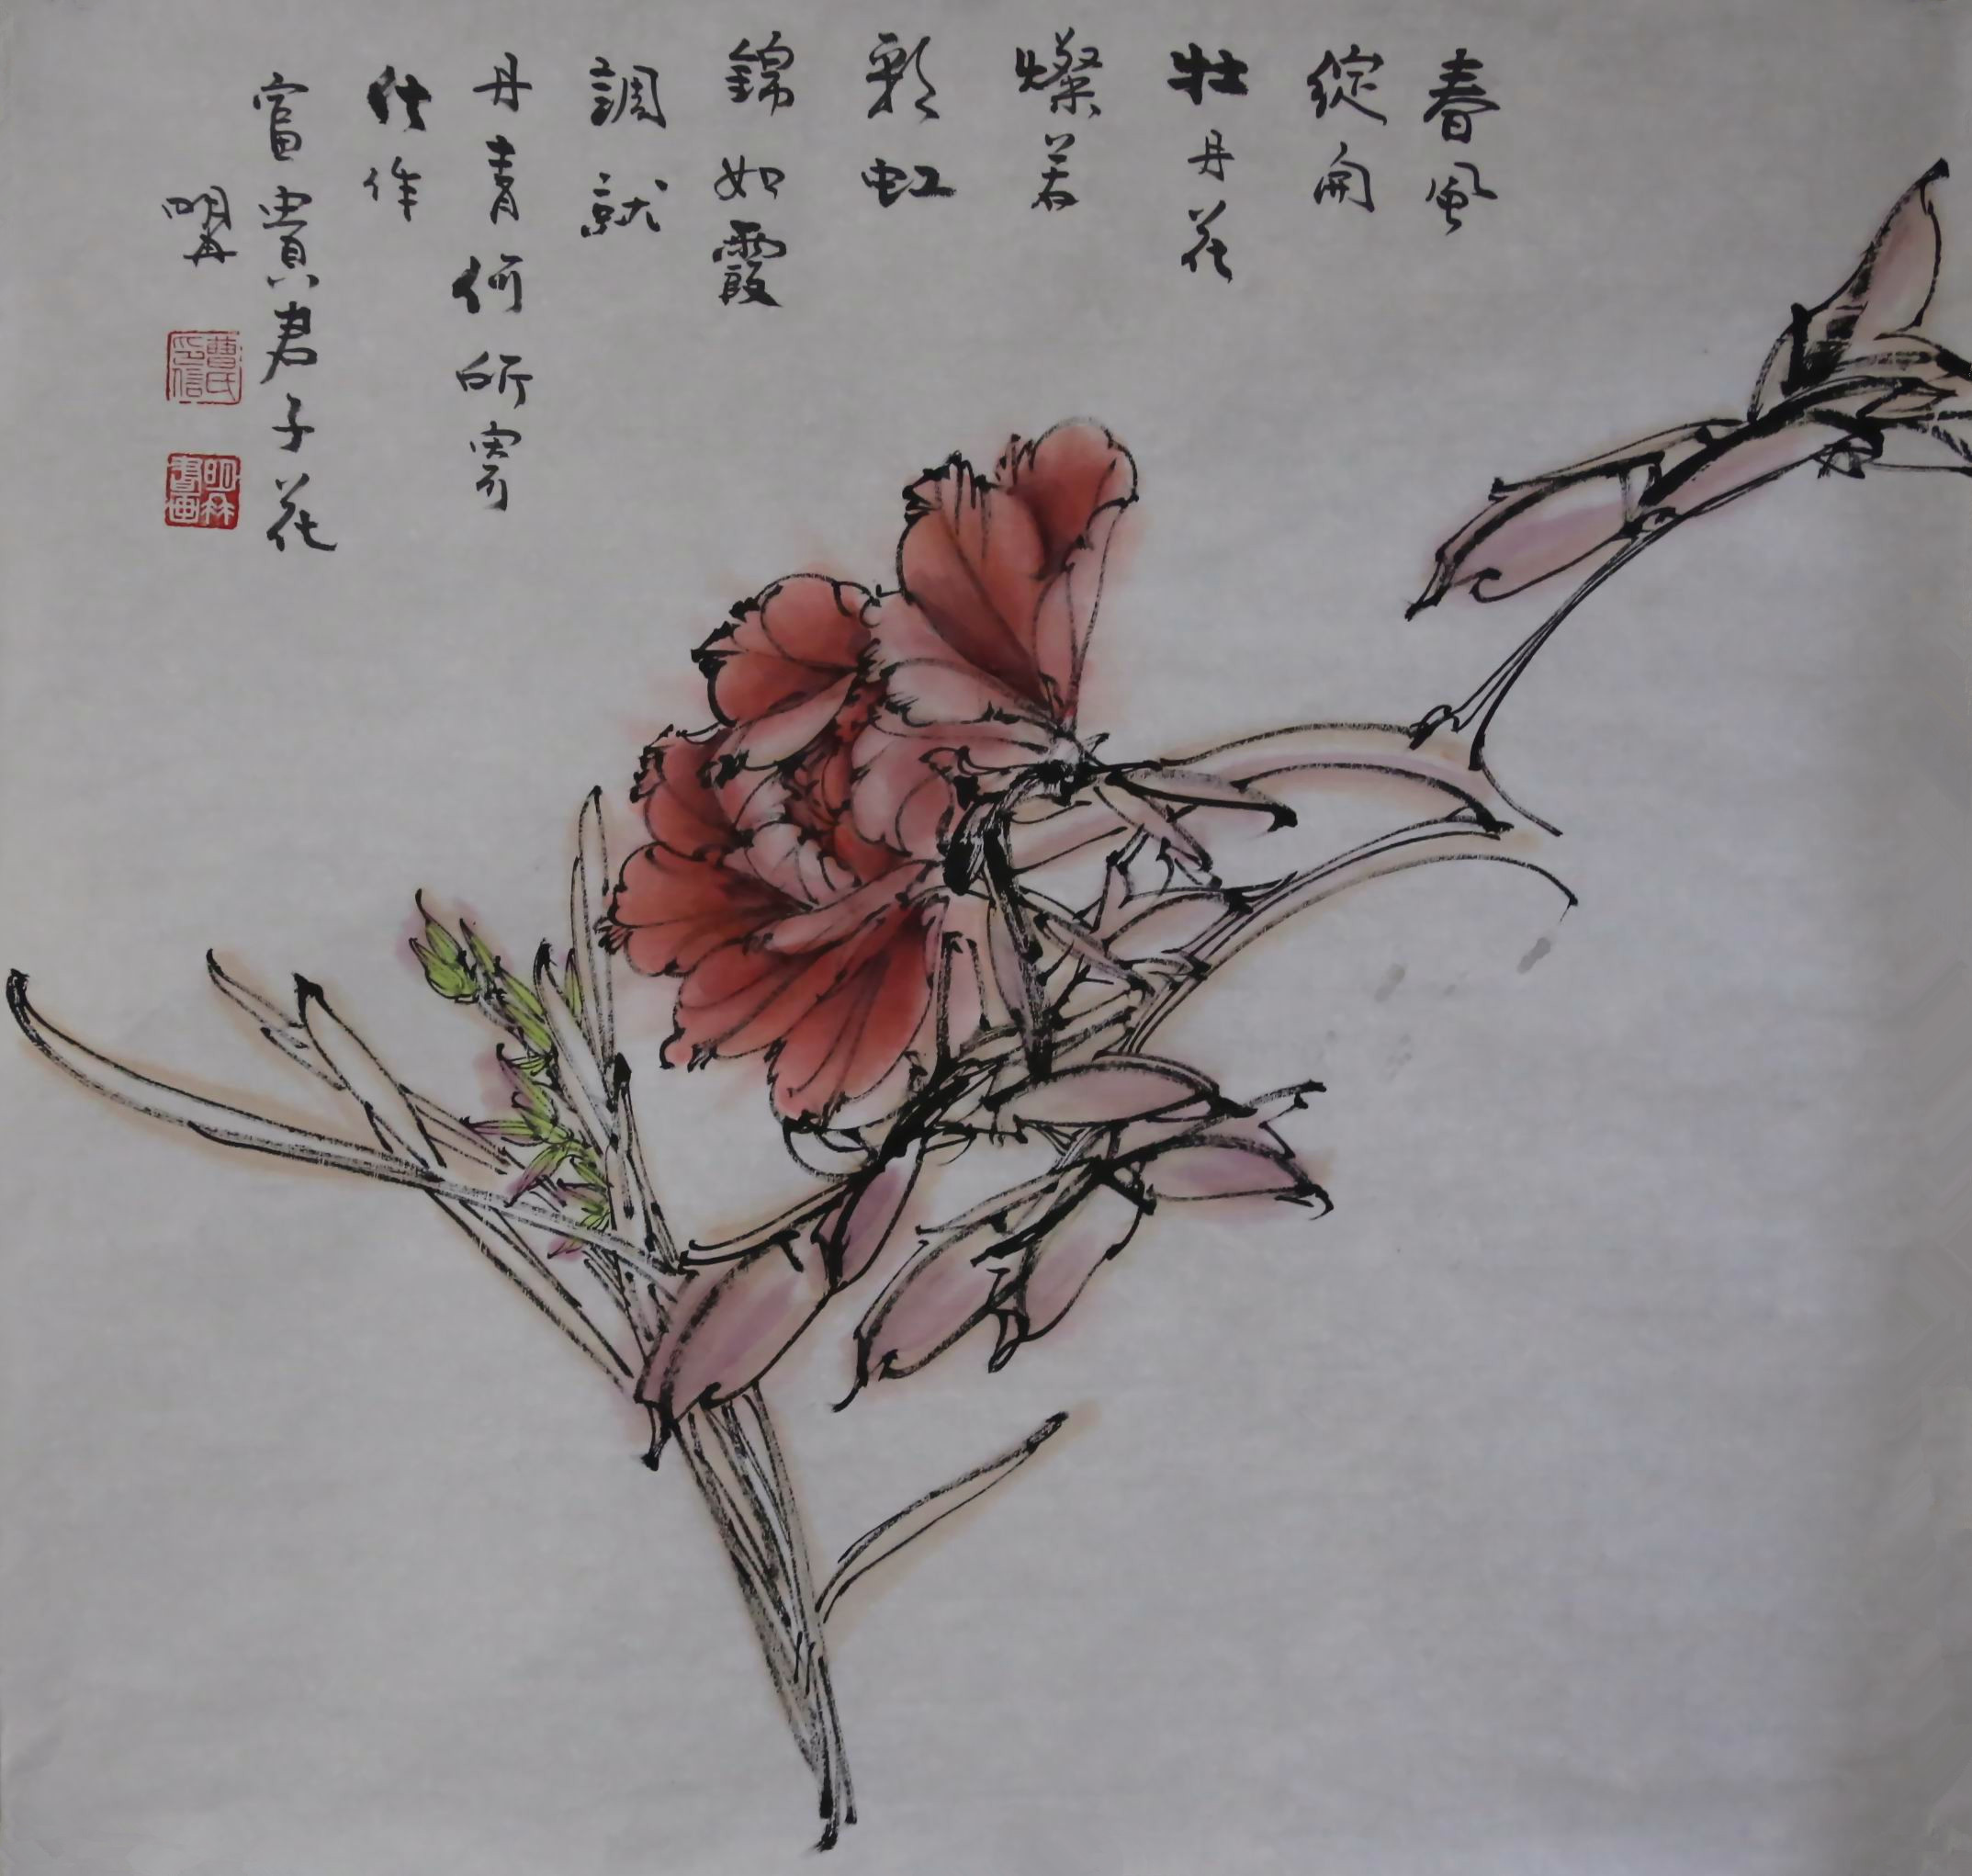 春風
綻開
牡丹花
燦若
彩虹
錦如霞
調就
丹青何所寄
仕作
富貴君子花
明冉
曹氏印信
明冉書画